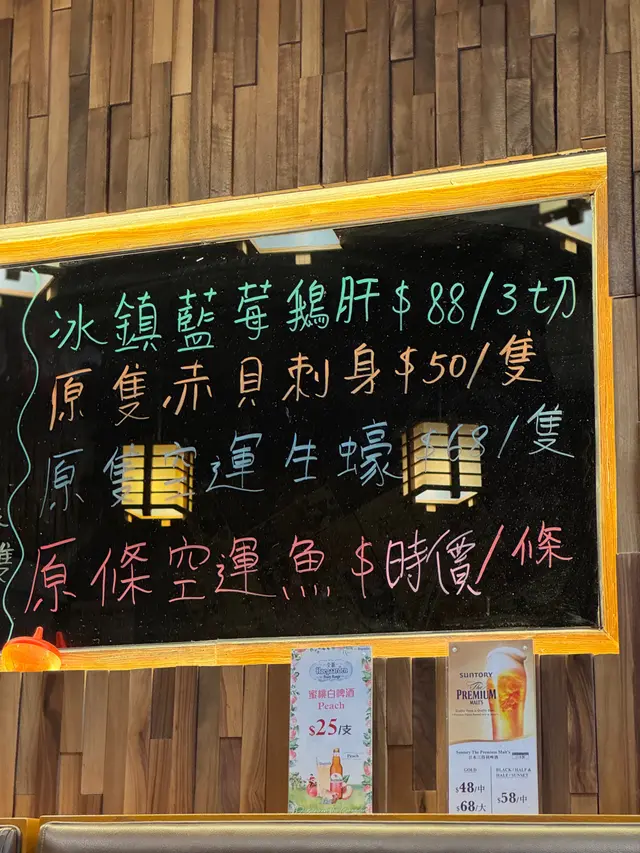 冰鎮藍莓鵝肝$88/3切
原隻赤貝刺身$50/隻
原隻空運生蠔$68/隻
原條空運魚$時價/條
隻
Hoegaarden
蜜桃白啤酒
Peach
$25/支
SUNTORY
The
PREMIUM
MALT'S
Suntory The Premium Malt's
GOLD
$48/中
$68/大
BLACK/HALF &
HALF/SUNSET
$58/中